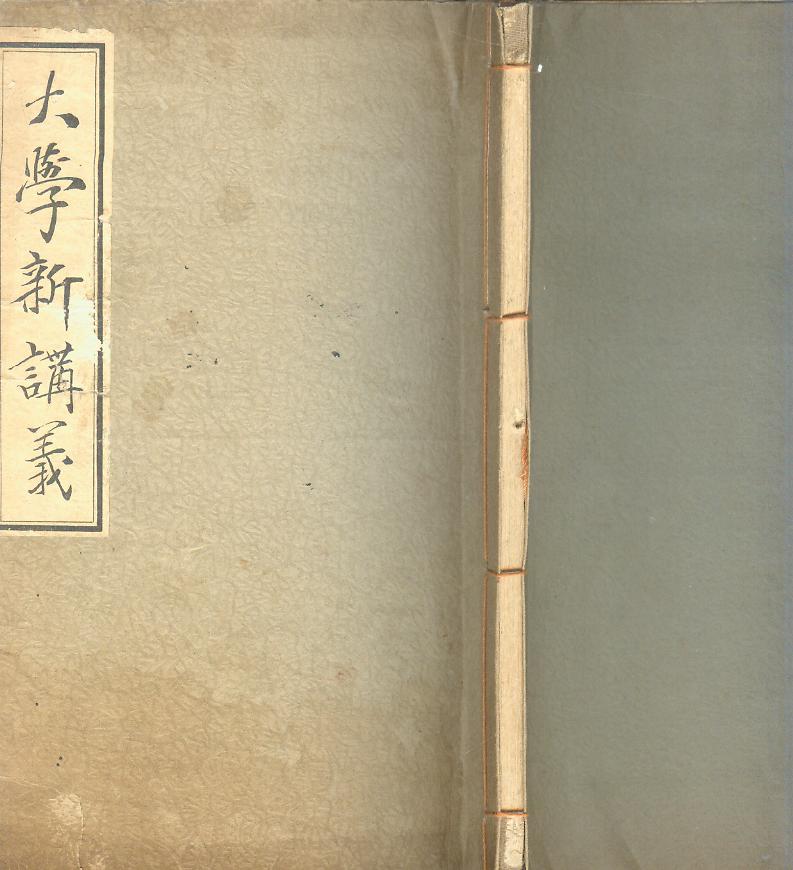 大學新講義